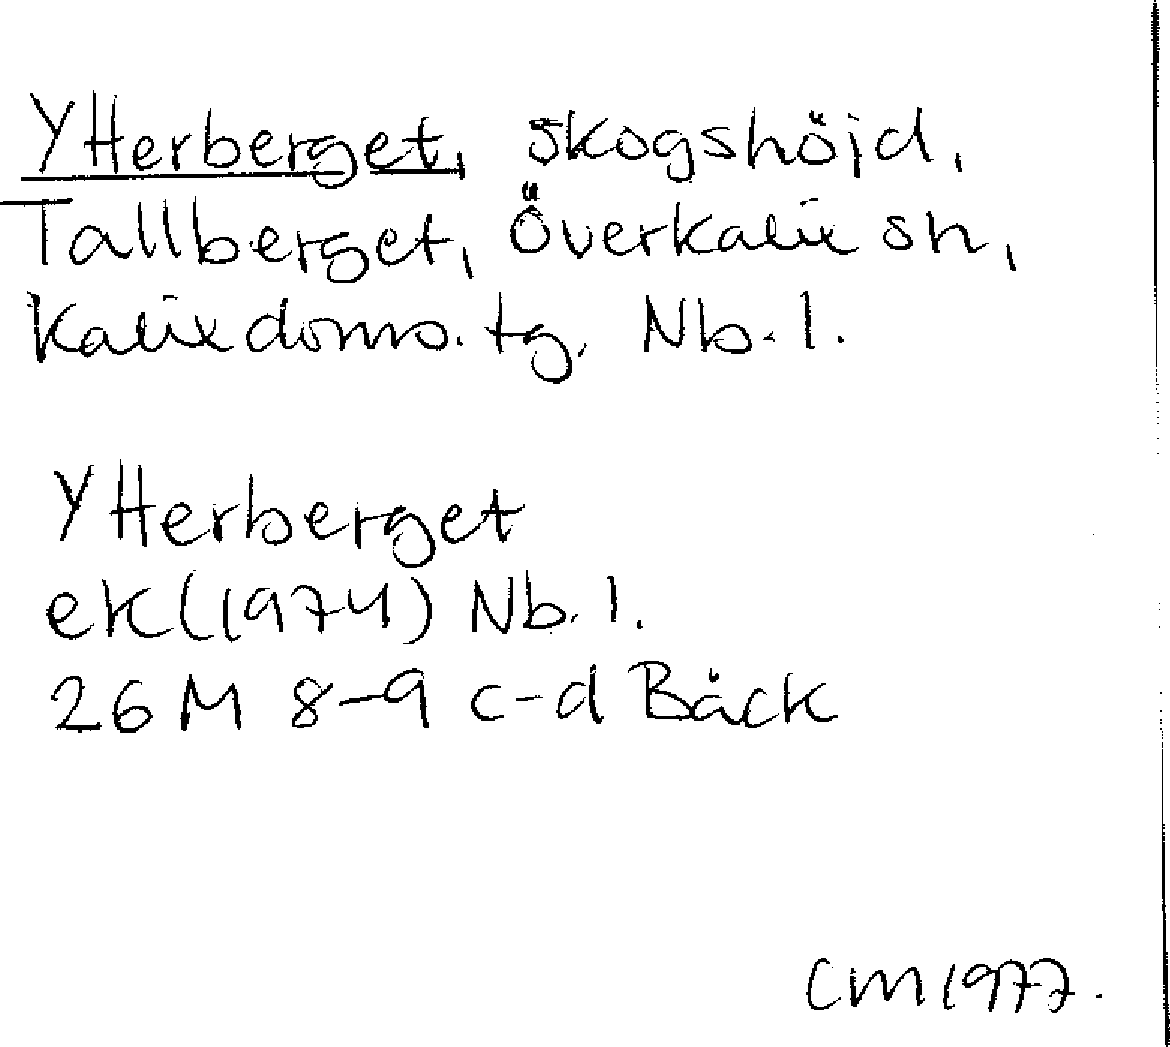 Ytterberget, skogshöjd,
Tallberget, Överkalix sn,
Kalix doms. tg. Nb. l.
Ytterberget
ek (1974) Nb. l.
26 M 8-9 c-d Bäck
CM 1977.